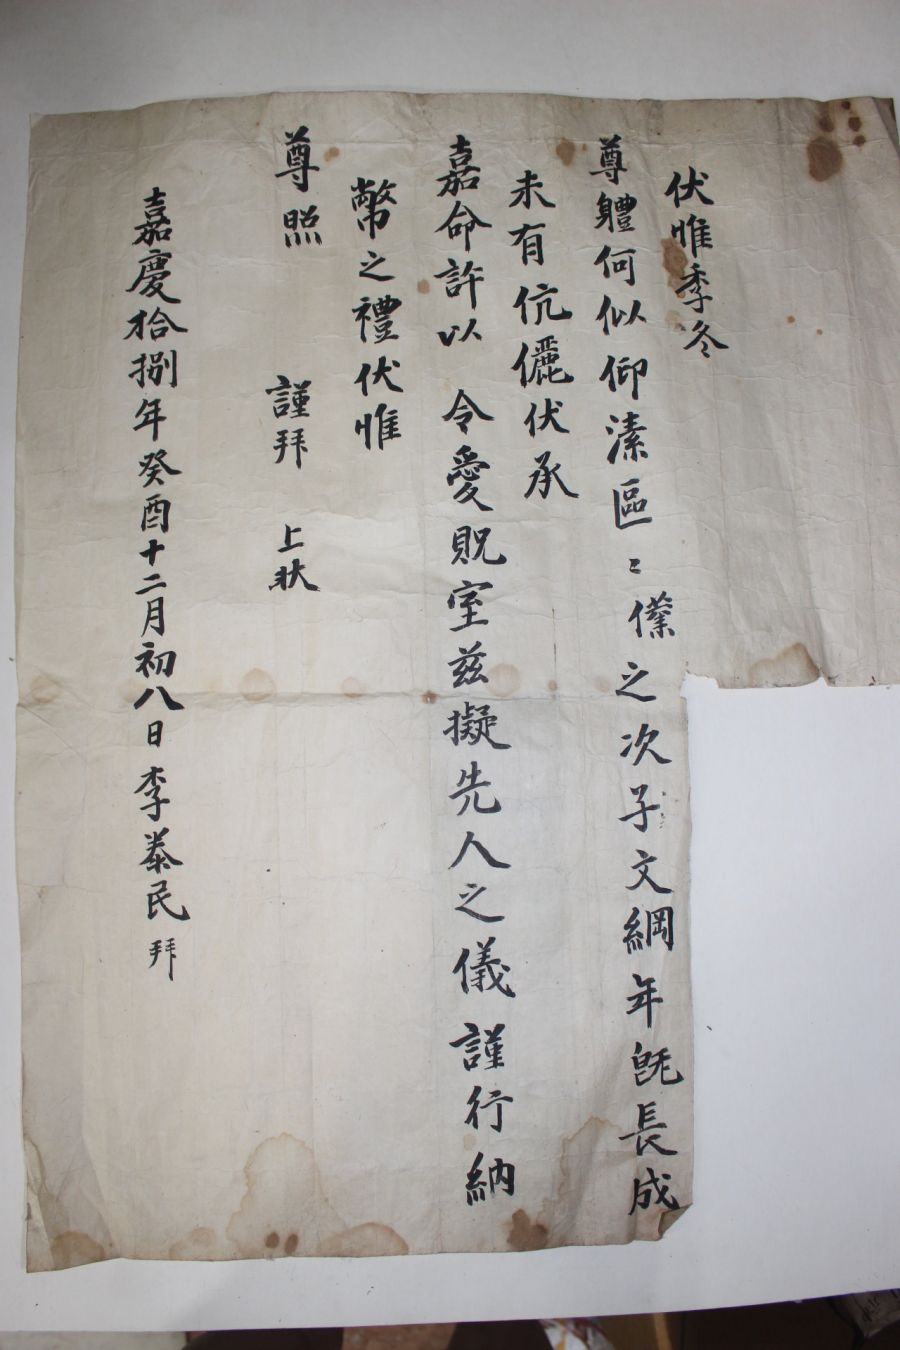 伏惟季冬
尊軆何似仰溸區〻僕之次子文綱年旣長成
未有伉儷伏承
嘉命許以 令愛貺室茲擬先人之儀謹行納
幣之禮伏惟
尊照 謹拜 上狀
嘉慶拾捌年癸酉十二月初八日李㤗民拜